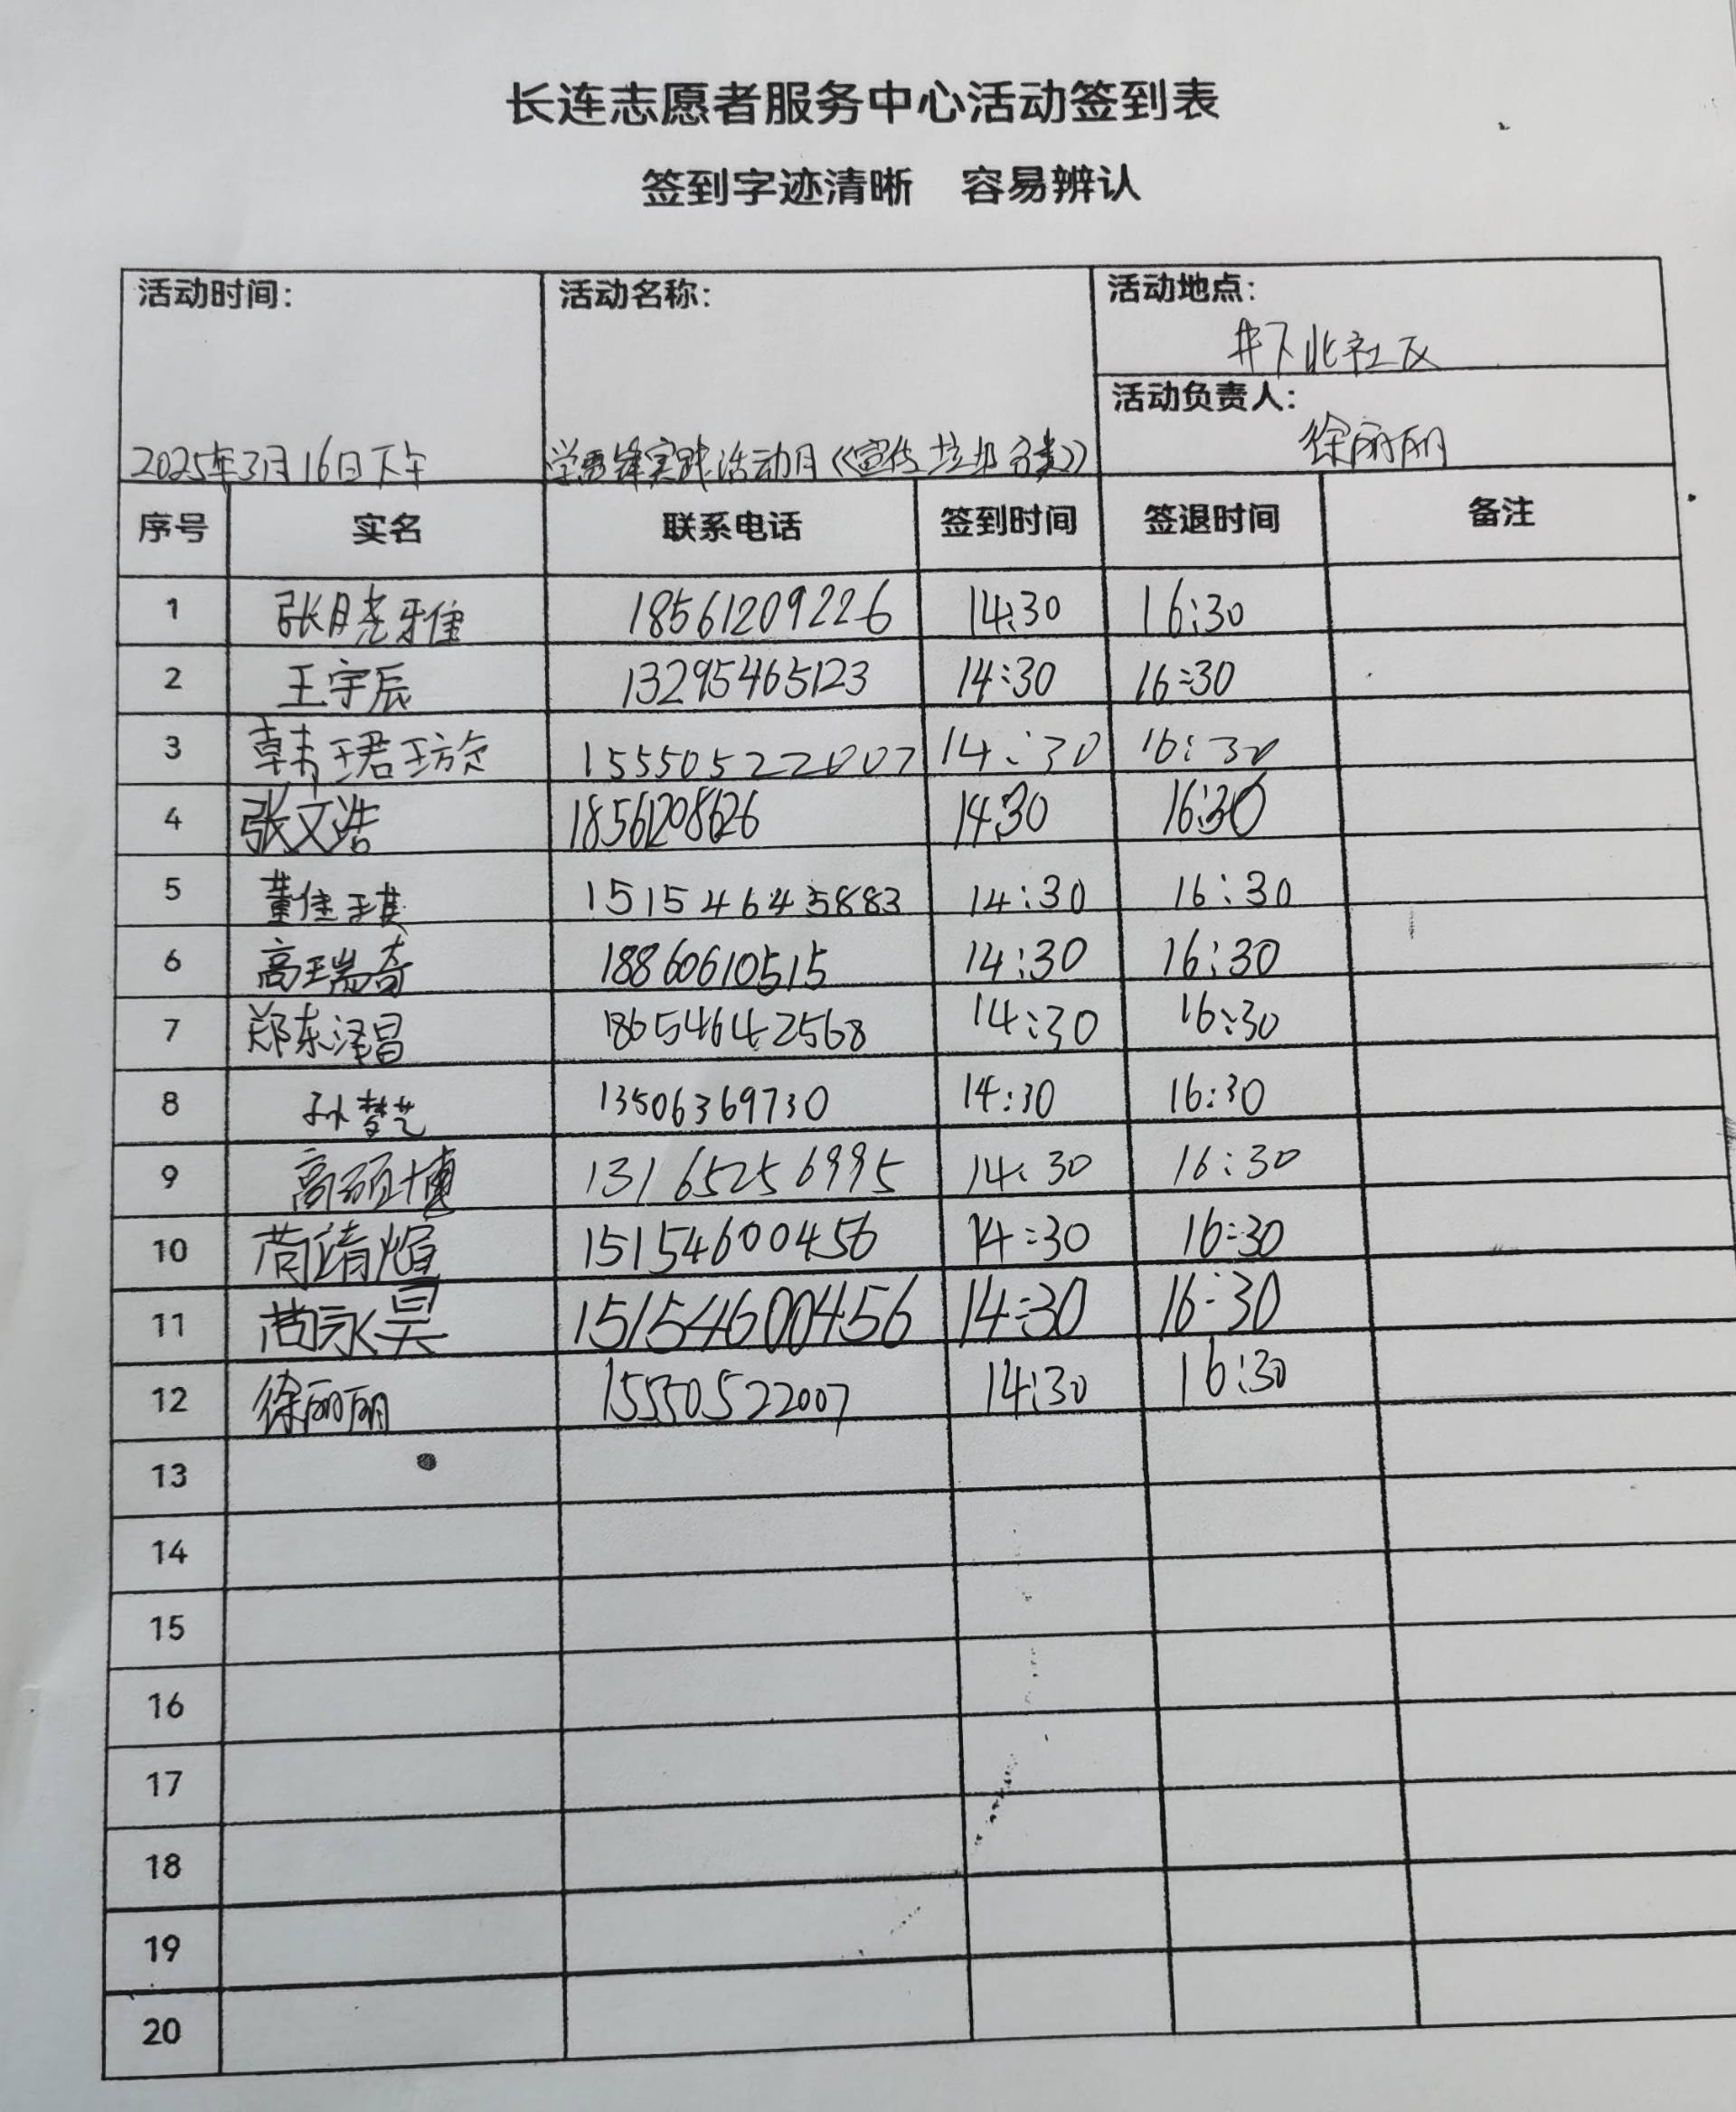 长连志愿者服务中心活动签到表
签到字迹清晰 容易辨认
活动时间： 活动名称： 活动地点：
井下北社区
活动负责人：
徐丽丽
2025年3月16日下午 学雷锋实践活动月《宣传垃圾分类》
序号 实名 联系电话 签到时间 签退时间 备注
1 张 雅佳 18561209226 14:30 16:30
2 王宇辰 13295465123 14:30 16:30
3 韩珺 15550522007 14:30 16:30
4 张文浩 18561208626 14:30 16:30
5 董佳琪 15154645883 14:30 16:30
6 高瑞奇 18860610515 14:30 16:30
7 郑东泽昌 18654642568 14:30 16:30
8 孙梦艺 13506369730 14:30 16:30
9 高硕博 13165256995 14:30 16:30
10 靖煊 15154600456 14:30 16:30
11 永昊 15154600456 14:30 16:30
12 徐丽丽 15550522007 14:30 16:30
13
14
15
16
17
18
19
20